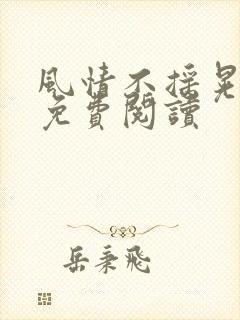 風情不搖晃
免費閱讀
岳秉飛